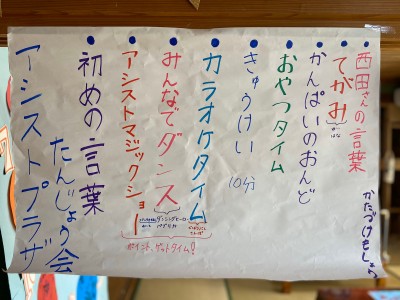 アシストプラザ
たんじょう会
初めの言葉
アシストマジックショー
みんなでダンス
ダンシングヒーロー
パプリカ
カラオケタイム
ポイント、ゲットタイム!
きゅうけい
10分
おやつタイム
かんぱいのおんど
てがみ
西田さんの言葉
かたづけもしよう